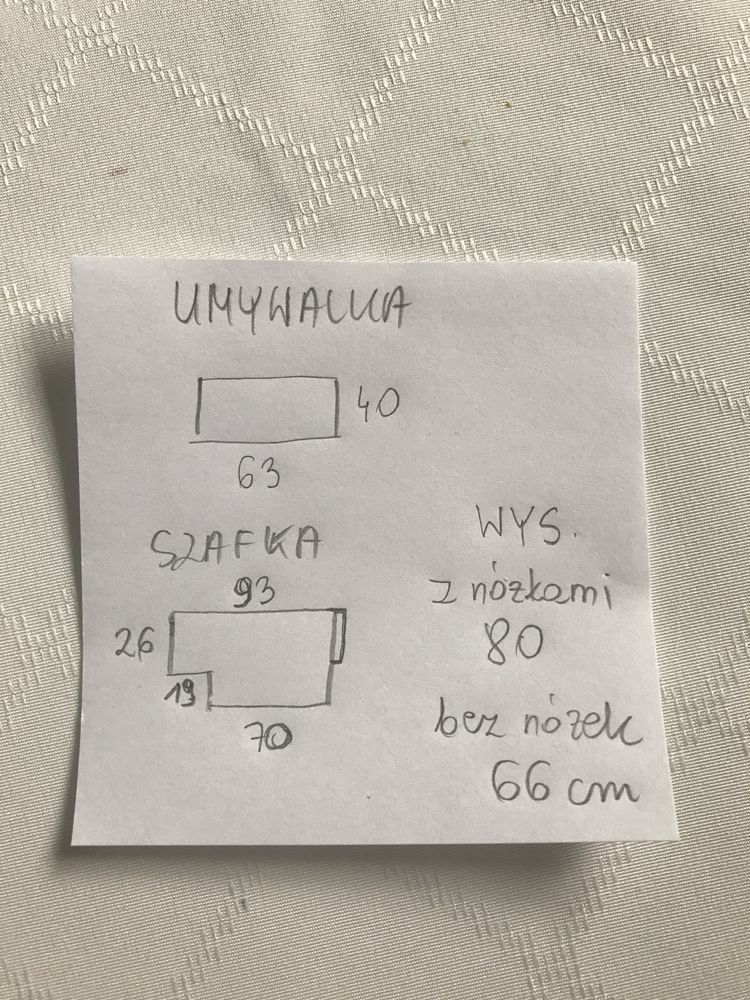 UMYWALKA
40
63
SZAFKA
93
26
19
70
WYS.
z nóżkami
80
bez nóżek
66 cm